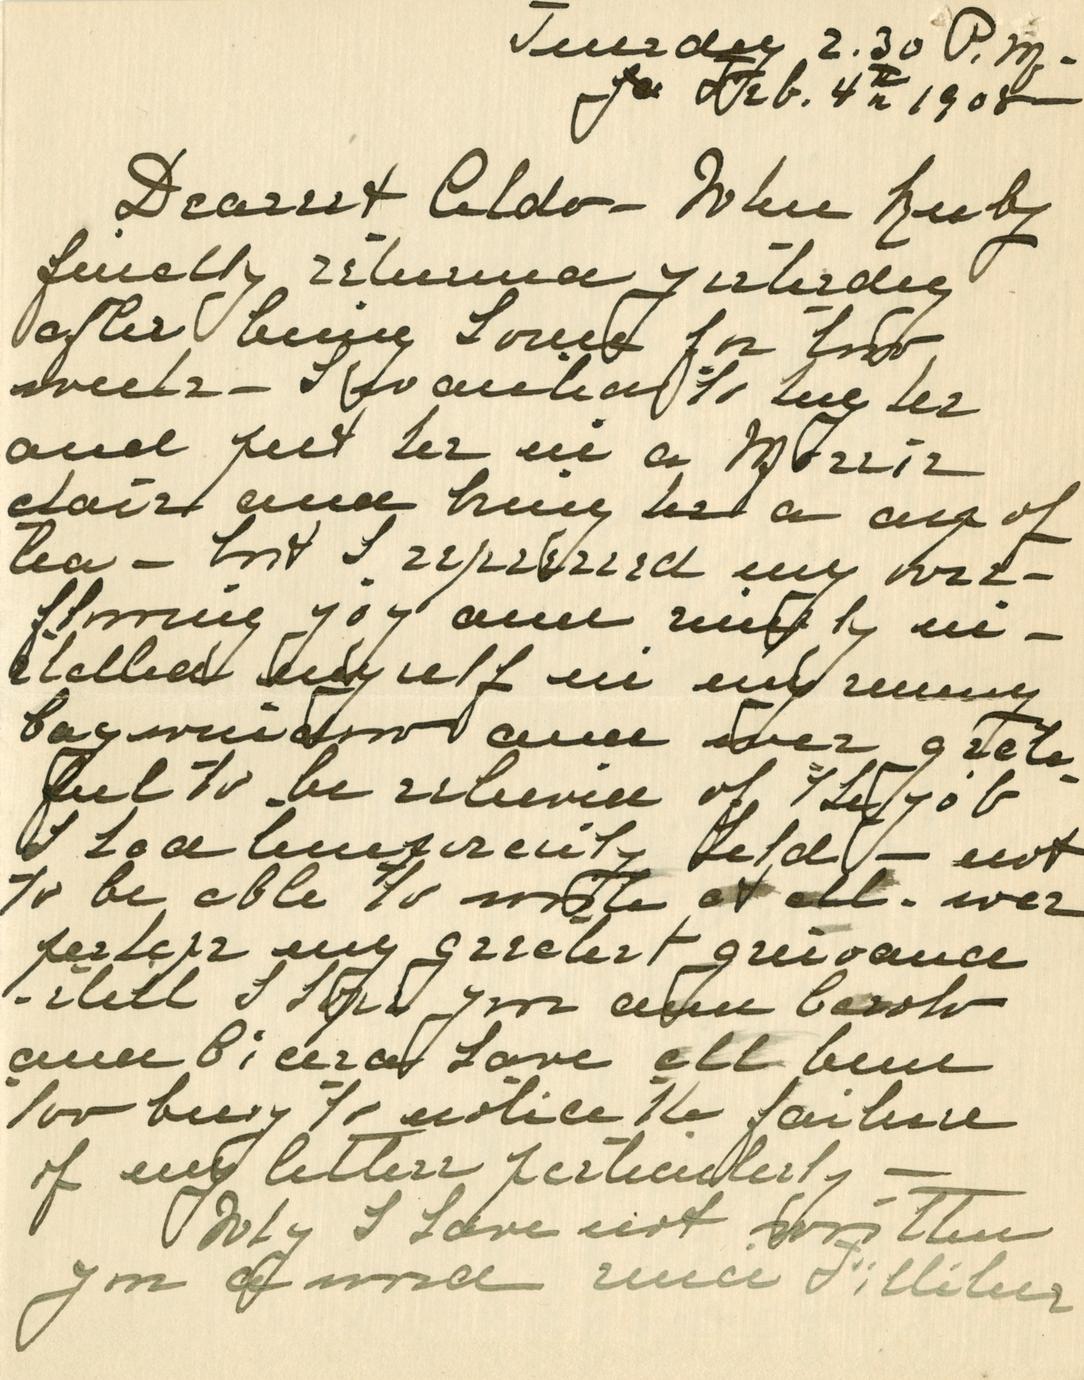 Tuesday 2.30 P.M.-
Feb. 4th 1908-
Dearest Aldo- When Ruby
finally returned yesterday
after being gone for two
weeks- I wanted to hug her
and put her in a Morris
chair and bring her a cup of
tea- but I repressed my over-
flowing joy and simply in-
stalled myself in my sunny
baywindow and was grate-
ful to be relieved of the job
I had temporarily held - not
to be able to write at all- was
perhaps my greatest grievance
-still I hope you and Carolo
and have all been
too busy to notice the failure
of my letters particularly-
Why I have not written
you a word since